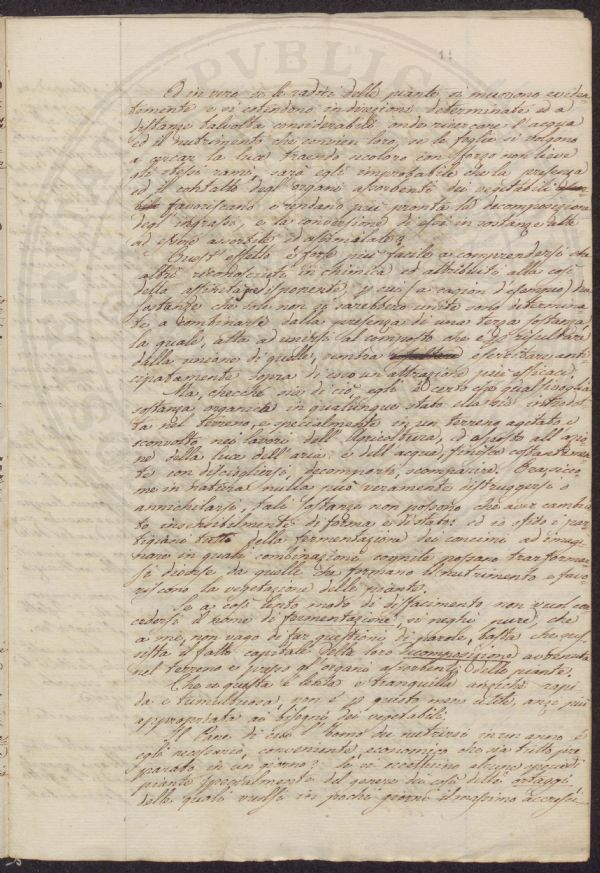 11
Ed in vero se le radici delle piante si muovono eviden
temente e si estendono in direzioni determinate ed a
distanze talvolta considerabili onde ricercare l'acqua
ed il nutrimento che convien loro, se le foglie si volgono
a cercar la luce traendo secoloro con sforzo non lieve
gli stessi rami, sarà egli improbabile che la presenza
ed il contatto degl'organi assorbenti dei vegetabili
favoriscano e rendano più pronta la decomposizione
degl'ingrassi, e la conversione di essi in sostanze atte
ad essere assorbite ed assimilate?
Quest'effetto è forse più facile a comprendersi che
altri riconosciuti in chimica ed attribuiti alla così
detta affinità disponente, per cui (a cagion d'esempio) due
sostanze che sole non si sarebbero unite sono determina
te a combinarsi dalla presenza di una terza sostanza,
la quale, atta ad unirsi al composto che è per risultare
dalla unione di quelle, sembra esercitare anti
cipatamente sopra di esso un'attrazione più efficace.
Ma, checchè sia di ciò, egli è certo che qualsivoglia
sostanza organica in qualunque stato ella sia introdot
ta nel terreno, e specialmente in un terreno agitato e
sconvolto nei lavori dell'Agricoltura, ed esposto all'azio
ne della luce dell'aria e dell'acqua, finisce costantemen
te con disciogliersi, decomporsi, scomparire. E siccome
in natura nulla può veramente distruggersi o
annichilarsi, tali sostanze non possono che aver cambia
to insensibilmente di forma e di stato: ed io sfido i par
tigiani tutti della fermentazione dei concimi ad imagi
nare in quali combinazioni cognite possano trasformar
si diverse da quelle che formano il nutrimento e favo
riscono la vegetazione delle piante.
Se a così lento modo di disfacimento non vuol con
cedersi il nome di fermentazione, si neghi pure, che
a me, non vago di far questioni di parole, basta che sus
sista il fatto capitale della loro decomposizione avvenuta
nel terreno e presso gl'organi assorbenti delle piante.
Che se questa è lenta e tranquilla anzichè rapi
da e tumultuosa, non è per questo meno utile, anzi più
appropriata ai bisogni dei vegetabili.
Il pane di cui l'uomo si nutrirà in un anno è
egli necessario, conveniente, economico che sia tutto pre
parato in un giorno? Se si eccettuino alcune specie di
piante specialmente del genere dei così detti ortaggi
delle quali vuolsi in pochi giorni il massimo accresci